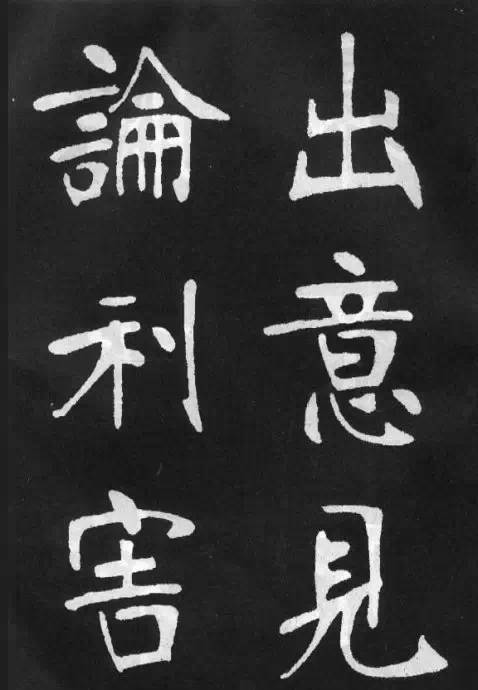 出意見
論利害